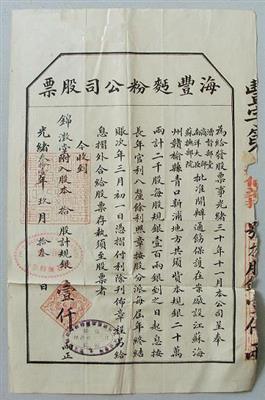 海豐麵粉公司股票
為給發股票事光緒三十年十一月本公司呈奉
商部
南洋大臣
蘇撫部院
批准開辦通飭保護在案廠設江蘇海
州贛榆縣青口新浦地方共集資本規銀二十萬
兩計二千股每股規銀壹百兩銀到之日起息按
長年官利八釐餘利照章按股分派每屆年終結
賬次年三月初一日憑摺付利除刊佈章程另給
息摺外合給股票存執須至股票者
今收到
錦澂堂附入股本拾股計規銀壹仟兩正
光緒叁拾壹年玖月拾叁日